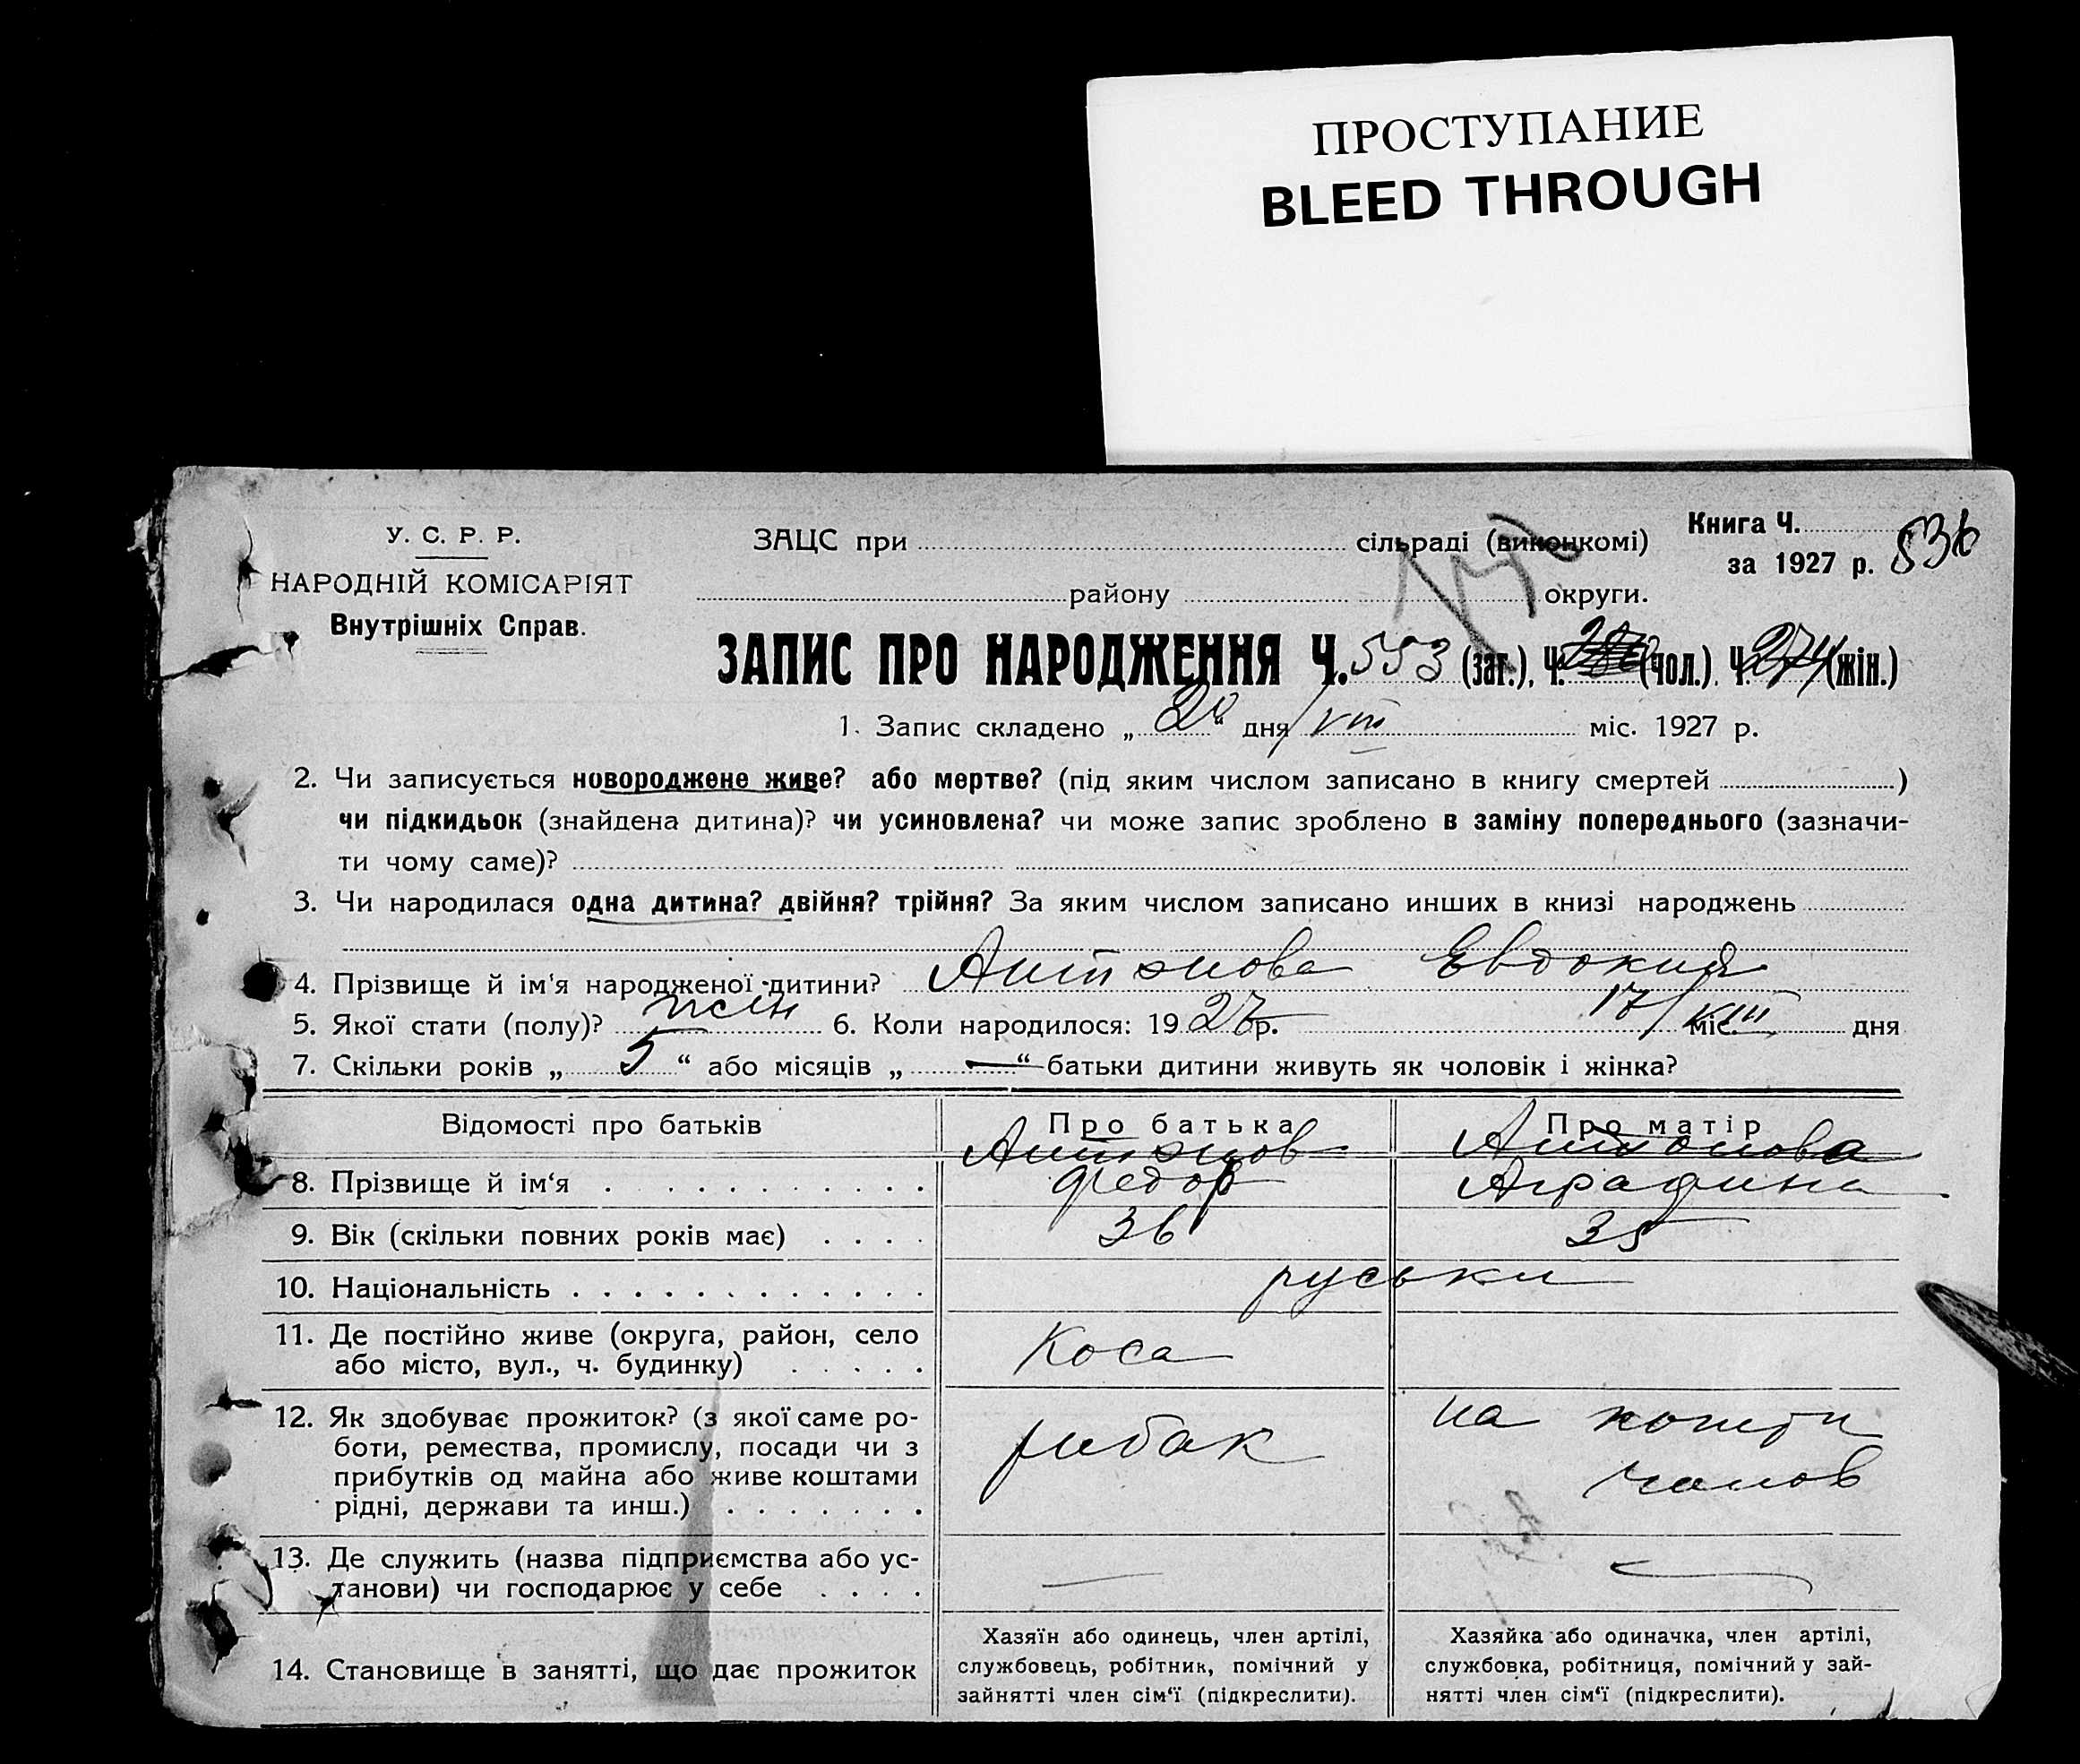 ПРОСТУПАНИЕ
BLEED THROUGH
У. С. Р. Р.
НАРОДНІЙ КОМІСАРІЯТ
Внутрішніх Справ.
ЗАЦС при сільраді (виконкомі)
району округи.
Книга Ч.
за 1927 р. 536
ЗАПИС ПРО НАРОДЖЕННЯ Ч. 553 (заг.), Ч. (чол.). Ч. 274 (жін.)
1. Запис складено „ 20 “ дня / VIII міс. 1927 р.
2. Чи записується новороджене живе? або мертве? (під яким числом записано в книгу смертей )
чи підкидьок (знайдена дитина)? чи усиновлена? чи може запис зроблено в заміну попереднього (зазначи-
ти чому саме)?
3. Чи народилася одна дитина? двійня? трійня? За яким числом записано инших в книзі народжень
4. Прізвище й ім‘я народженої дитини? Антонова Евдокия
5. Якої стати (полу)? жен 6. Коли народилося: 1927 р. 17/VIII міс. дня
7. Скільки років „ 5 “ або місяців „ — “ батьки дитини живуть як чоловік і жінка?
Відомості про батьків Про батька Про матір
Антонов Антонова
8. Прізвище й ім‘я Федор Аграфина
9. Вік (скільки повних років має) 36 35
10. Національність руськи
11. Де постійно живе (округа, район, село
або місто, вул., ч. будинку) Коса
12. Як здобуває прожиток? (з якої саме ро-
боти, ремества, промислу, посади чи з
прибутків од майна або живе коштами
рідні, держави та инш.)
рибак
на кошти
13. Де служить (назва підприємства або ус-
танови) чи господарює у себе — —
14. Становище в занятті, що дає прожиток
Хазяїн або одинець, член артілі,
службовець, робітник, помічний у
зайнятті член сім‘ї (підкреслити).
Хазяйка або одиначка, член артілі,
службовка, робітниця, помічний у зай-
нятті член сім‘ї (підкреслити).